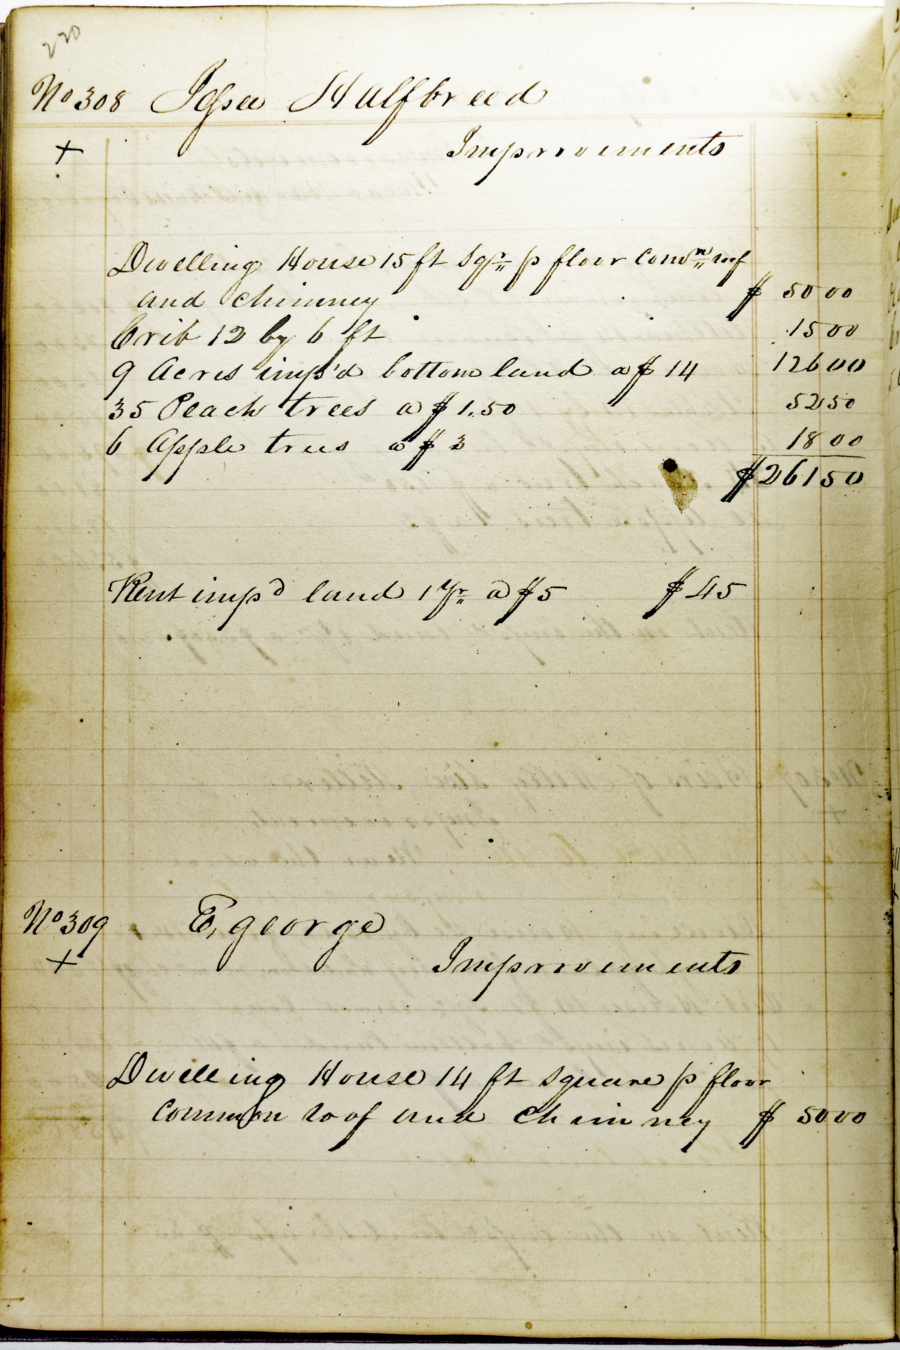 220
No 308 Jesse Halfbreed
+
Improvements
Dwelling House 15 ft Sqr p floor Comn roof
and chimney $ 50 00
Crib 12 by 6 ft 15 00
9 Acres imp'd bottom land a $ 14 126 00
35 Peach trees a $ 1.50 52 50
6 Apple trees a $ 3 18 00
$ 261 50
Rent impd land 1 yr a $ 5 $ 45
No 309 E, george
+
Improvements
Dwelling House 14 ft square p floor
common roof and chimney $ 50 00